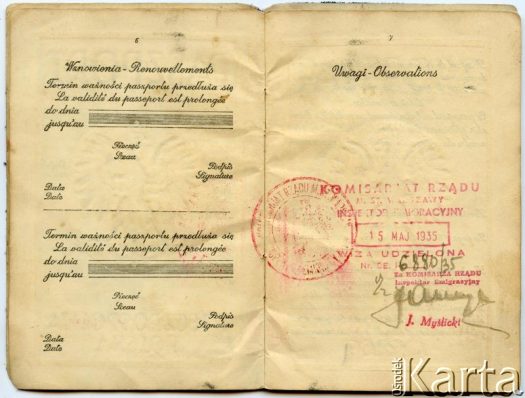 6
Wznowienia - Renouvellements
Termin ważności paszportu przedłuża się
La validité du passeport est prolongée
do dnia
jusqu'au
Pieczęć
Sceau
Podpis
Signature
Data
Date
Termin ważności paszportu przedłuża się
La validité du passeport est prolongée
do dnia
jusqu'au
Pieczęć
Sceau
Podpis
Signature
Data
Date
7
Uwagi - Observations
KOMISARJAT RZĄDU
M. ST. WARSZAWY
INSPEKTOR EMIGRACYJNY
15 MAJ 1935
WIZA UDZIELONA
Nr. 6880/35
Za KOMISARZA RZĄDU
Inspektor Emigracyjny
J. Myślicki
ośrodek
Karta